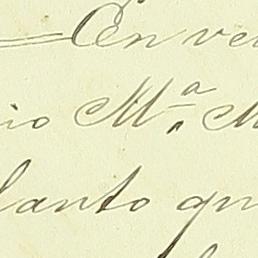 En ve
io M.ª M
lanto qu